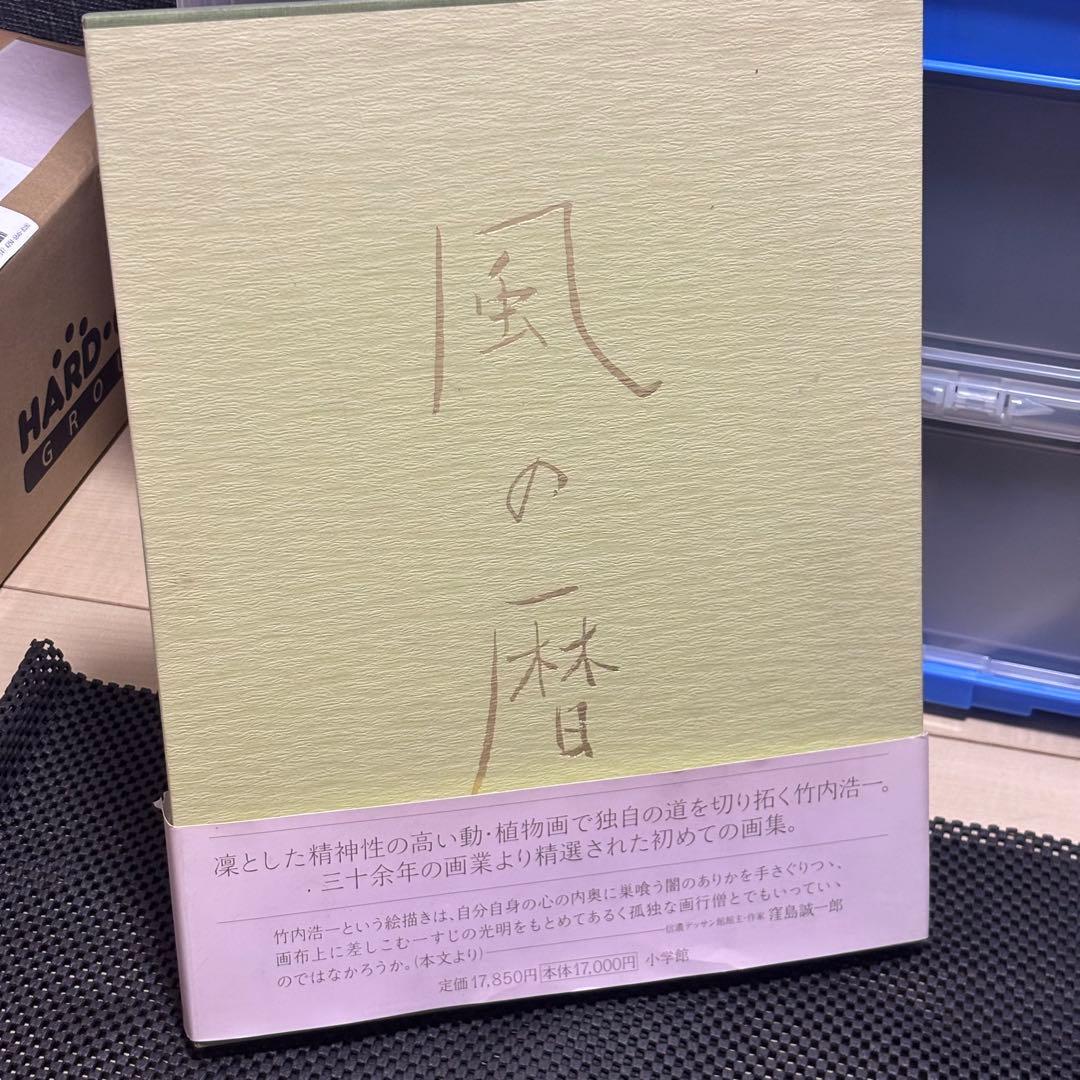 風の暦
凜とした精神性の高い動・植物画で独自の道を切り拓く竹内浩一。
三十余年の画業より精選された初めての画集。
竹内浩一という絵描きは、自分自身の心の内奥に巣喰う闇のありかを手さぐりつゝ、
画布上に差しこむ一すじの光明をもとめてあるく孤独な画行僧とでもいっていゝ
のではなかろうか。(本文より)
信濃デッサン館館主・作家 窪島誠一郎
定価17,850円 本体17,000円 小学館
HARD
GRO